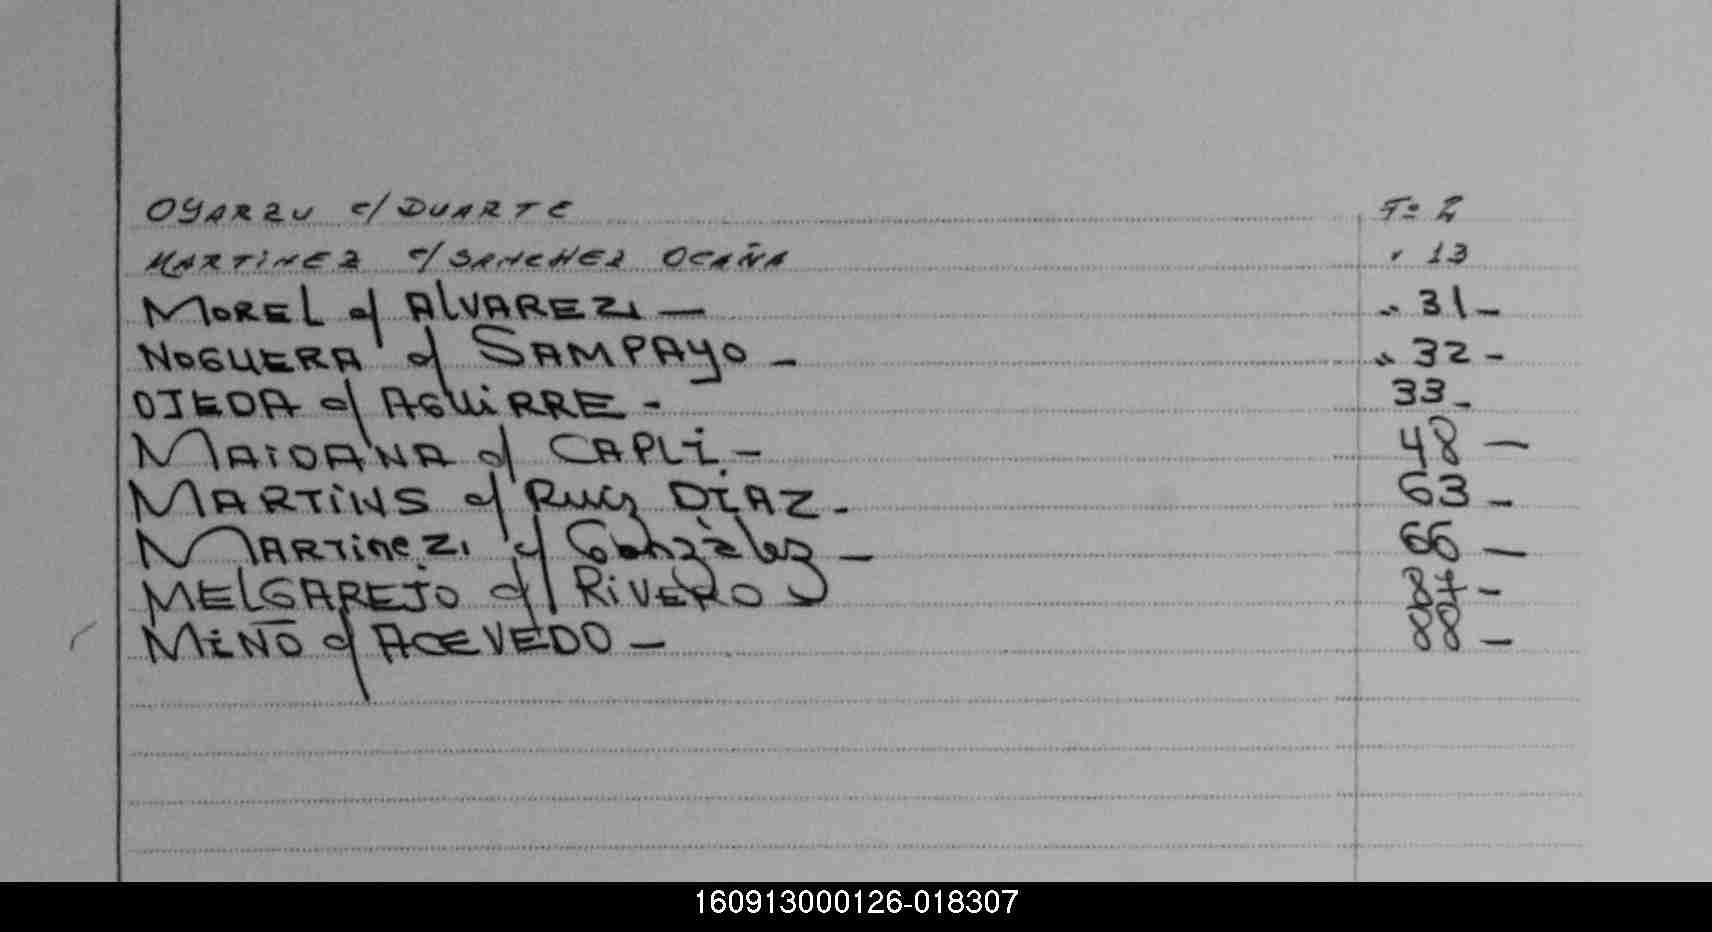 OYARZU c/ DUARTE Fº 2
MARTINEZ c/ SANCHEZ OCAÑA " 13
MOREL c/ ALVAREZ — " 31 -
NOGUERA c/ SAMPAYO - " 32 -
OJEDA c/ AGUIRRE - 33 -
MAIDANA c/ CAPLI. - 48 —
MARTINS c/ RUIZ DIAZ - 63 -
MARTINEZ c/ González — 66 —
MELGAREJO c/ RIVERO 87 -
MIÑO c/ ACEVEDO — 88 -
160913000126-018307